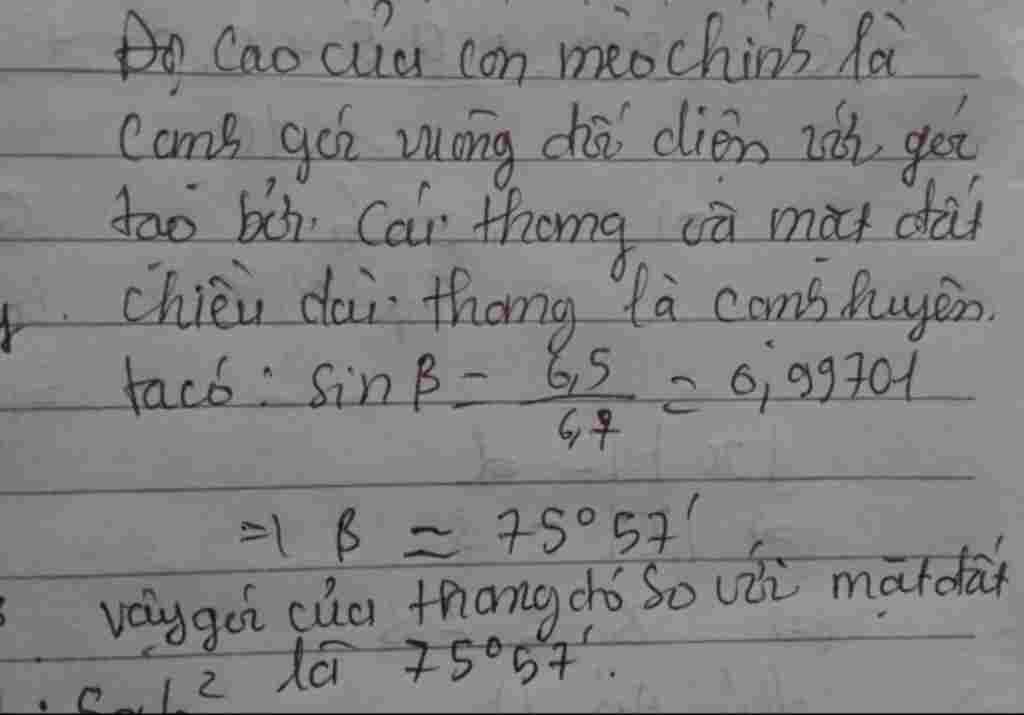 Độ cao của con mèo chính là
cạnh góc vuông đối diện với góc
tạo bởi cái thang và mặt đất
chiều dài thang là cạnh huyền.
ta có: sin β = 6,5 / 6,7 = 0,99701
=> β ≈ 75°57'
vậy góc của thang đó so với mặt đất
là 75°57'.